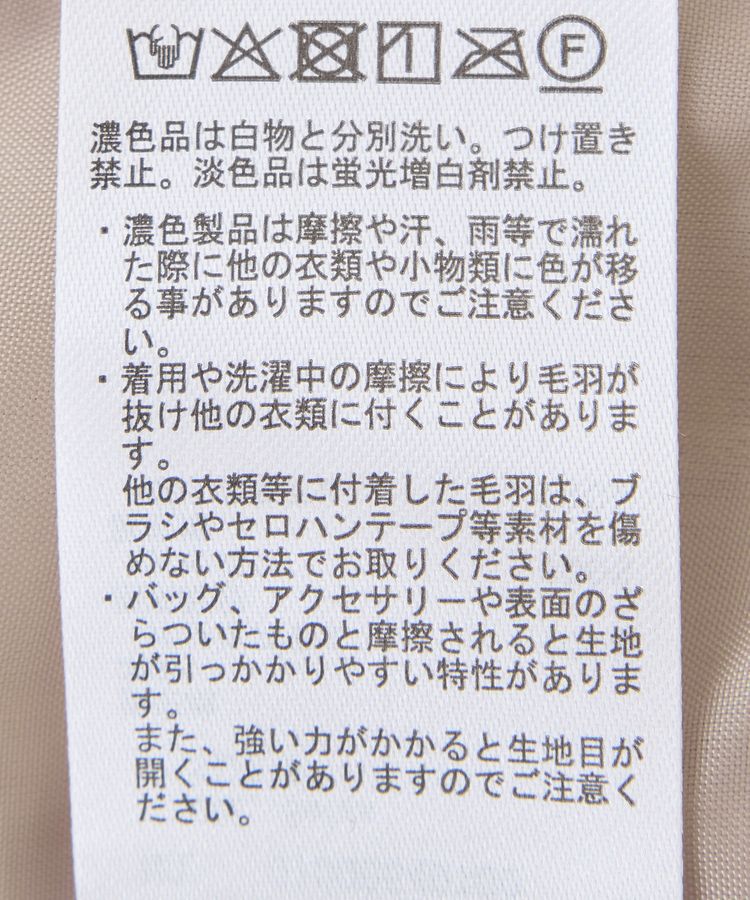 F
濃色品は白物と分別洗い。つけ置き
禁止。淡色品は蛍光増白剤禁止。
・濃色製品は摩擦や汗、雨等で濡れ
た際に他の衣類や小物類に色が移
る事がありますのでご注意くださ
い。
・着用や洗濯中の摩擦により毛羽が
抜け他の衣類に付くことがありま
す。
他の衣類等に付着した毛羽は、ブ
ラシやセロハンテープ等素材を傷
めない方法でお取りください。
・バッグ、アクセサリーや表面のざ
らついたものと摩擦されると生地
が引っかかりやすい特性がありま
す。
また、強い力がかかると生地目が
開くことがありますのでご注意く
ださい。